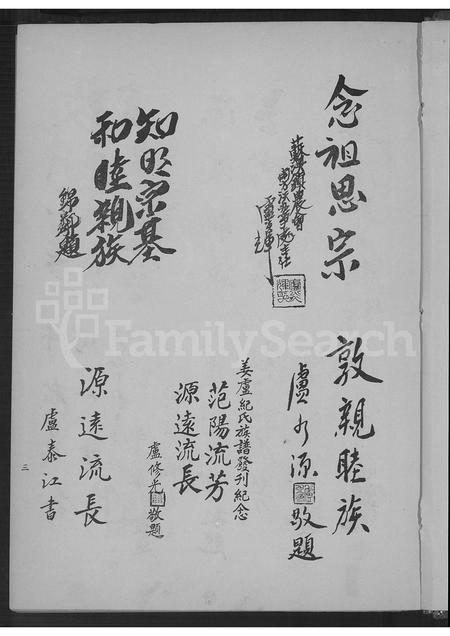 念祖思宗
知明宗基
和睦親族
錦鄰題
敦親睦族
盧水源
敬題
姜盧紀氏族譜發刊紀念
范陽流芳
源遠流長
盧修光
敬題
源遠流長
盧泰江書
三
FamilySearch